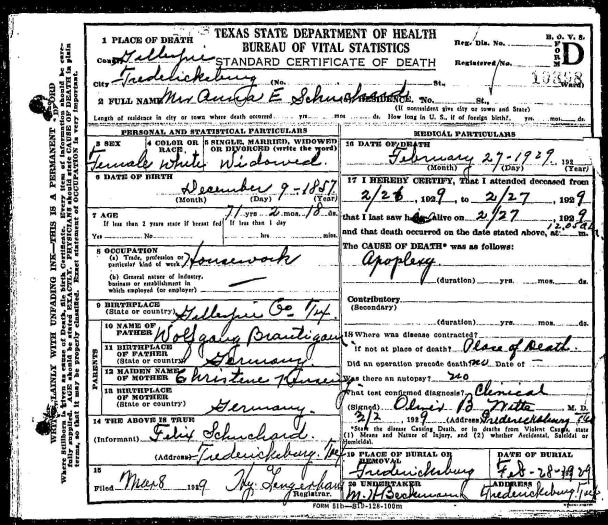 TEXAS STATE DEPARTMENT OF HEALTH
BUREAU OF VITAL STATISTICS
STANDARD CERTIFICATE OF DEATH
B. O. V. S.
FORM D
Reg. Dis. No.
Registered No.
WRITE PLAINLY WITH UNFADING INK—THIS IS A PERMANENT RECORD
1 PLACE OF DEATH
County Gillespie
City Fredericksburg (No. St.,
2 FULL NAME Mrs Anna E Schuchard RESIDENCE. No. St.,
(If nonresident give city or town and State)
Length of residence in city or town where death occurred yrs. mos. ds. How long in U. S., if of foreign birth? yrs. mos. ds.
PERSONAL AND STATISTICAL PARTICULARS
3 SEX 4 COLOR OR RACE. 5 SINGLE, MARRIED, WIDOWED OR DIVORCED (write the word)
Female White Widowed.
6 DATE OF BIRTH
December 9-1857
(Month) (Day) (Year)
7 AGE 71 yrs 2 mos. 18 ds.
If less than 2 years state if breast fed If less than 1 day
Yes No hrs. min.
8 OCCUPATION
(a) Trade, profession or particular kind of work Housework
(b) General nature of industry, business or establishment in which employed (or employer) —
9 BIRTHPLACE
(State or country) Gillespie Co Tex.
PARENTS
10 NAME OF FATHER Wolfgang Brautigam
11 BIRTHPLACE OF FATHER
(State or country) Germany
12 MAIDEN NAME OF MOTHER Christene
13 BIRTHPLACE OF MOTHER
(State or country) Germany.
14 THE ABOVE IS TRUE
(Informant) Felix Schuchard
(Address) Fredericksburg, Tex
15
Filed Mar 8 1929 Hy. Registrar.
MEDICAL PARTICULARS
16 DATE OF DEATH
February 27-1929 192
(Month) (Day) (Year)
17 I HEREBY CERTIFY, That I attended deceased from
2/26, 1929, to 2/27, 1929
that I last saw her alive on 2/27, 1929
and that death occurred on the date stated above, at m.
The CAUSE OF DEATH* was as follows:
Apoplexy
(duration) yrs. mos. ds.
Contributory
(Secondary)
(duration) yrs. mos. ds.
18 Where was disease contracted?
if not at place of death? Place of Death
Did an operation precede death? no Date of
Was there an autopsy? no
What test confirmed diagnosis? Clinical
(Signed) B M. D.
3/2 1929 (Address) Fredericksburg Tex
*State the disease Causing Death, or in deaths from Violent Causes, state (1) Means and Nature of Injury, and (2) whether Accidental, Suicidal or Homicidal.
19 PLACE OF BURIAL OR REMOVAL DATE OF BURIAL
Fredericksburg Feb-28-1929
20 UNDERTAKER ADDRESS
Beckmann Fredericksburg Tex
FORM 51b—B1D-128-100m